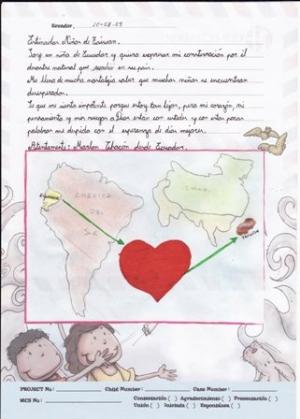 Ecuador, 20-08-09
Estimados Niños de Taiwan.
Soy un niño de Ecuador y quiero expresar mi consternación por el
desastre natural que sucedió en su país.
Me llena de mucha nostalgia saber que muchos niños se encuentran
desesperados.
Lo que me siento impotente porque estoy tan lejos, pero mi corazón, mi
pensamiento y mis ruegos a Dios están con ustedes y con estas pocas
palabras me despido con el esperanza de días mejores.
Atentamente: Marlon Chacón desde Ecuador.
Ecuador
AMERICA
DEL
SUR
CHINA
Taiwan
PROJECT No: Child Number: Case Number:
MCS No: Consternación ( ) Agradecimiento ( ) Presentación ( )
Unión ( ) Iniciada ( ) Respondiendo ( )